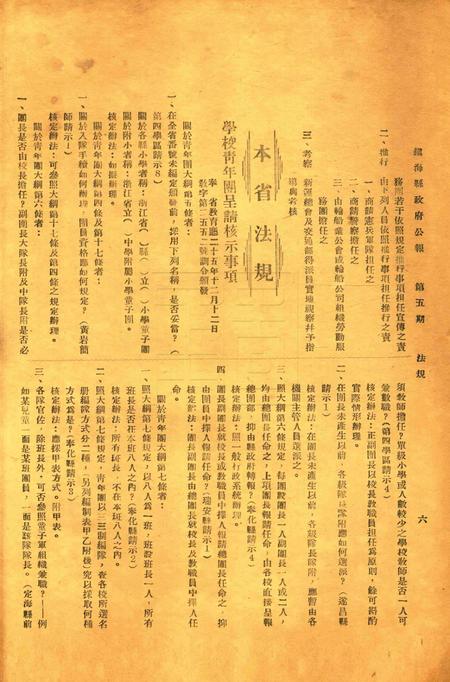 鎮海縣政府公報　第五期　法規
六
務團若干依照規定推行事項担任宣傳之責
二、推行　由下列人員依照推行事項担任推行之責
一、商請憲兵軍隊担任之
二、商請警察担任之
三、由輪船業公會或輪船公司組織勞動服
務團擔任之
三、考察　新運總會及交通部得派員實地視察并予指
導與考核
本省法規
學校青年團呈請核示事項
奉　省教育廳二十五年十二月十二日
教字第二五五二號訓令頒發
關於青年團大綱第五條者：
一、在全省番號未編定頒發前，採用下列名稱，是否妥當？（
第四學區請示8）
關於各縣小學者稱：浙江省（　）縣（　）立（　）小學童子團
關於附小者稱：浙江省立（　）中學附屬小學童子團。
核定辦法：如擬辦理。
關於青年團大綱第四條及第十七條者：
一、關於入隊手續如何辦理？團員資格應如何規定？（黃岩簡
師請示1）
核定辦法：可參照大綱第十七條及第四條之規定辦理。
關於青年團大綱第六條者：
一、團長是否由校長擔任？副團長大隊長附及中隊長附是否必
須教師擔任？單級小學或人數較少之學校教師是否一人可
兼數職？（第四學區請示4）
核定辦法：正副團長以校長教職員担任爲原則，餘可酌酌
實際情形辦理。
二、在團長未產生以前，各級隊長隊附應如何選派？（遂昌縣
請示1）
核定辦法：在團長未產生以前，各級隊長隊附，應暫由各
機關主管人員選派之。
三、照大綱第六條規定，每團設團長一人副團長一人或二人，
均由總團長任命之，上項團長報請任命，由各校直接呈報
總團部，抑由縣政府轉報？（奉化縣請示4）
核定辦法：照一般行政系統辦理。
四　團長副團長就校長或教職員中擇人報請總團長任命之，抑
由團員中擇人報請任命？（瑞安縣請示1）
核定辦法：團長副團長由總團長就校長及教職員中擇人任
命。
關於青年團大綱第七條者：
一、照大綱第七條規定，以八人爲一班，班設班長一人，所有
班長是否在本班八人之內？（奉化縣請示2）
核定辦法：所有班長，不在本班八人之內。
二、照大綱第七條規定，青年團以三三制編隊，查各校所選名
册編隊方式分二種，（另列編制表甲乙附後）究以採取何種
方式爲是？（奉化縣請示3）
核定辦法：應採甲表方式。附甲表。
三、各隊官佐，除班長外，可否參照童子軍組織兼職？——例
如某兒童，一面是某班團員，一面是該隊隊長。（定海縣前